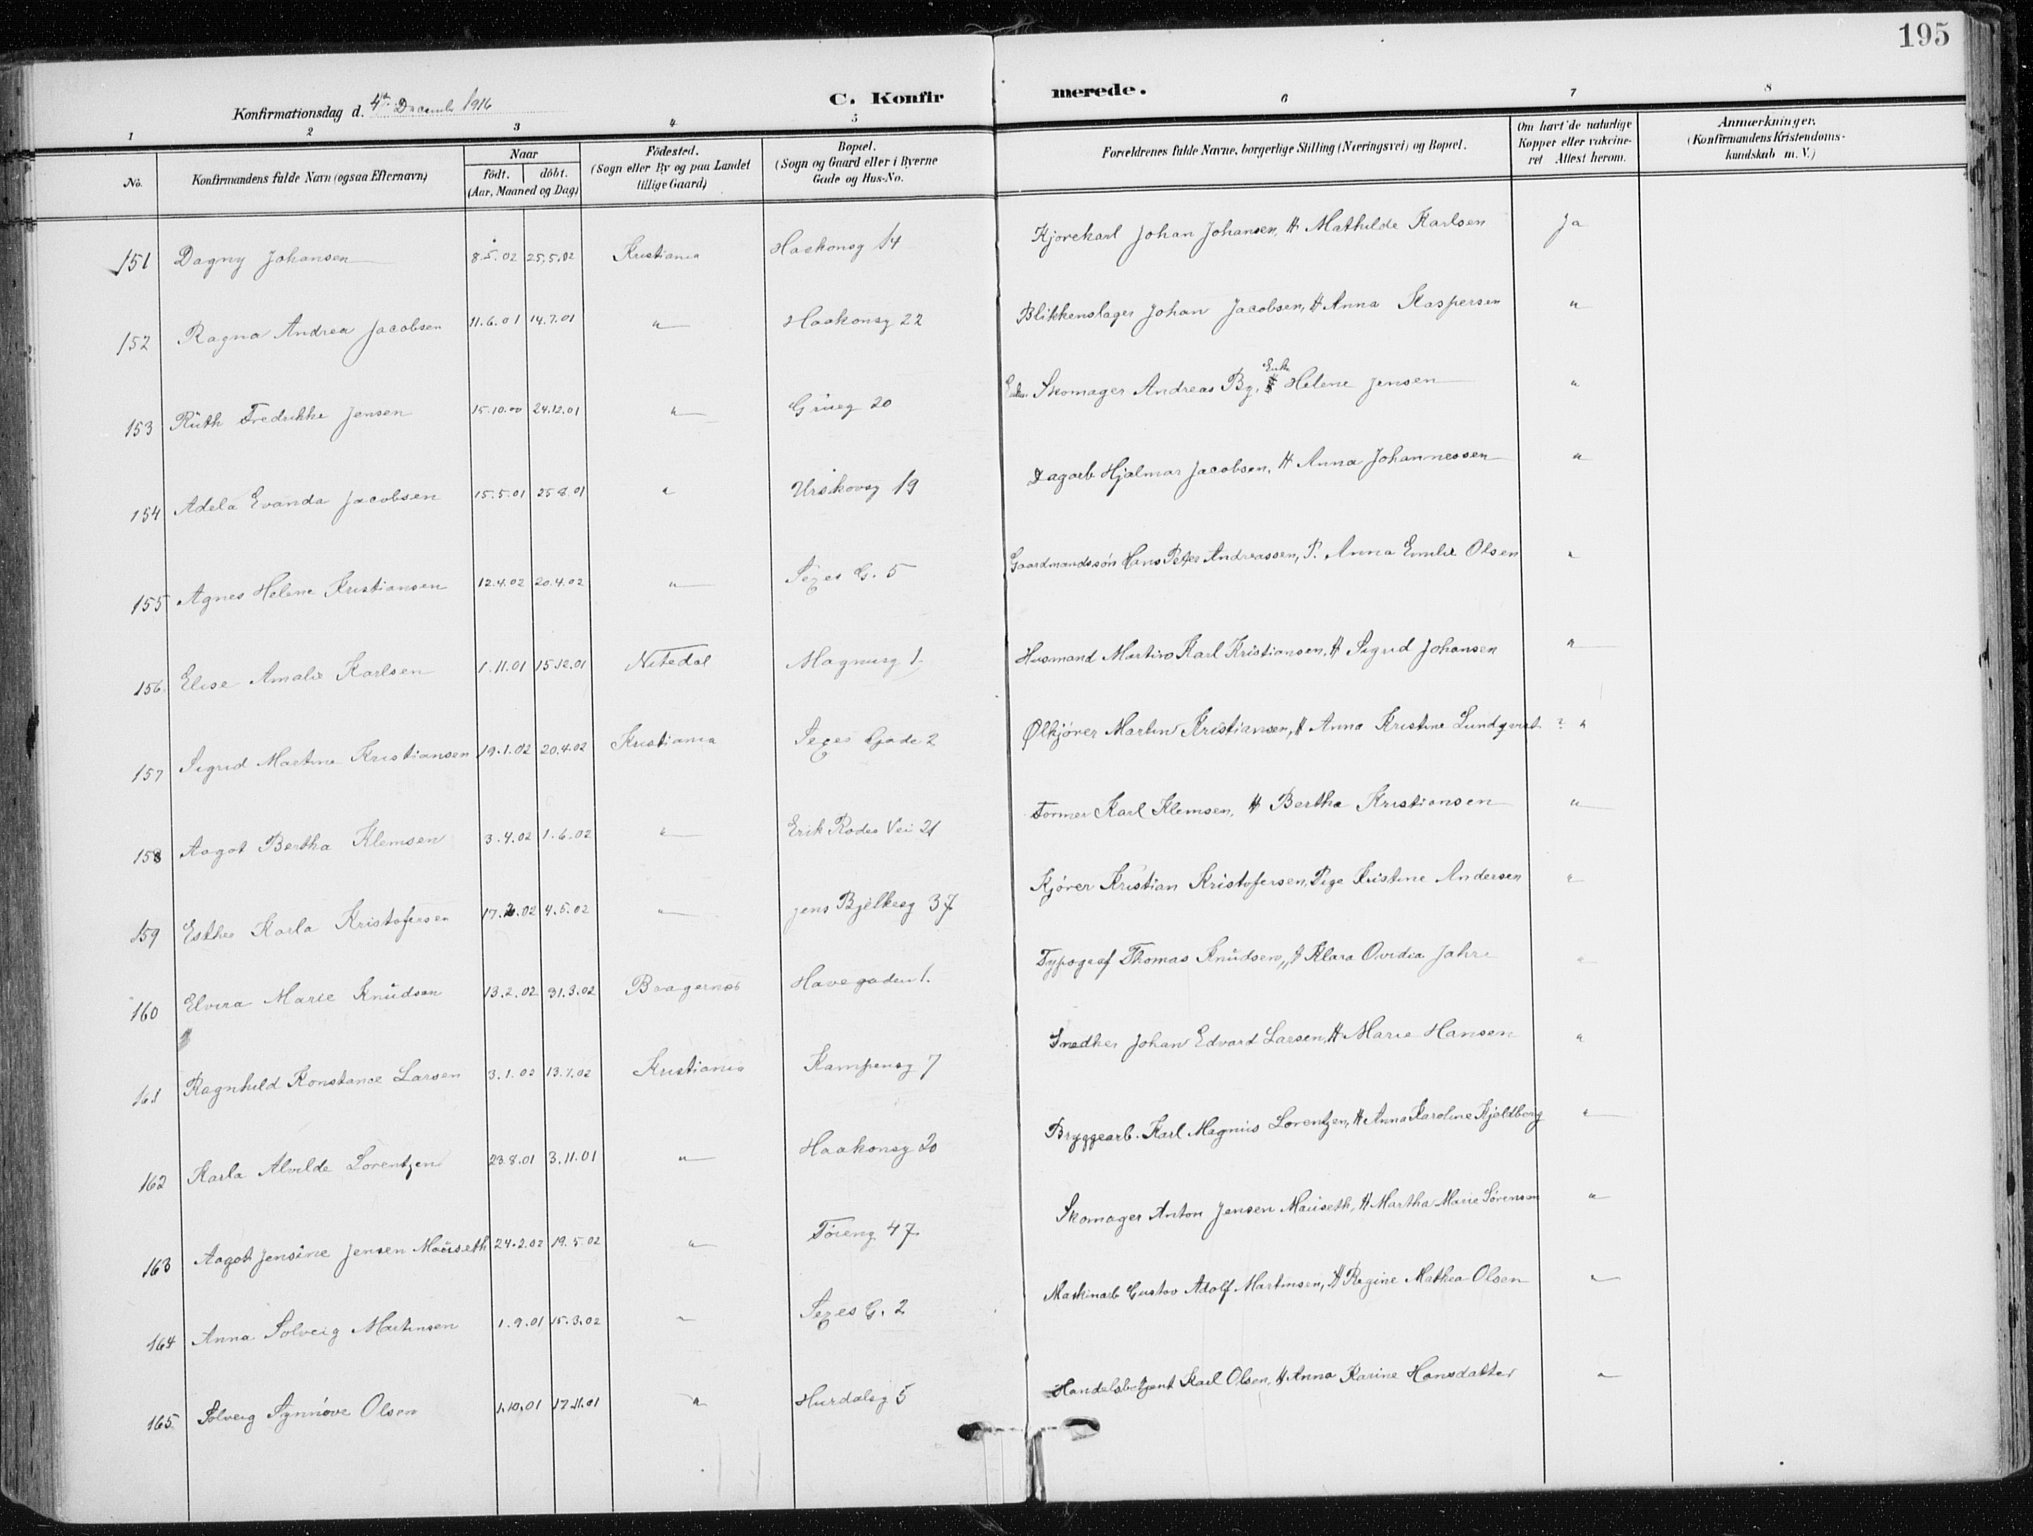 195
Konfirmationsdag d. 4de Decembr 1916
C. Konfirmerede.
1 2 3 4 5 6 7 8
No.
Konfirmandens fulde Navn (ogsaa Efternavn)
Naar
födt. döbt.
(Aar, Maaned og Dag)
Födested.
(Sogn eller By og paa Landet
tillige Gaard)
Bopæl.
(Sogn og Gaard eller i Byerne
Gade og Hus-No.
Forældrenes fulde Navne, borgerlige Stilling (Næringsvei) og Bopæl.
Om havt de naturlige
Kopper eller vakcine-
ret Attest herom.
Anmærkninger.
(Konfirmandens Kristendoms-
kundskab m. V.)
151 Dagny Johansen 8.5.02 25.5.02 Kristiania Haakonsg 14 Kjørekarl Johan Johansen, H Mathilde Karlsen Ja
152 Ragna Andrea Jacobsen 11.6.01 14.7.01 " Haakonsg 22 Blikkenslager Johan Jacobsen, H Anna Kaspersen "
153 Ruth Fredrikke Jensen 15.10.00 24.12.01 " Grueg 20 Skomager Andreas By, Enke Helene Jensen "
154 Adela Evanda Jacobsen 15.5.01 25.8.01 " Urskovsg 19 Dagarb Hjalmar Jacobsen, H Anna Johannessen "
155 Agnes Helene Kristiansen 12.4.02 20.4.02 " Sexes G. 5 Gaardmandssøn Hans Peter Andreassen, P. Anna Emilie Olsen "
156 Elise Amalie Karlsen 1.11.01 15.12.01 Nitedal Magnusg 1. Husmand Martin Karl Kristiansen, H Sigrid Johansen "
157 Sigrid Martine Kristiansen 19.1.02 20.4.02 Kristiania Sexes Gade 2 Ølkjører Martin Kristiansen, H Anna Kristine Lundqvist ? "
158 Aagot Bertha Klemsen 3.4.02 1.6.02 " Erik Rodes Vei 21 Former Karl Klemsen, H Bertha Kristiansen "
159 Esther Karla Kristofersen 17.2.02 4.5.02 " Jens Bjelkesg 37. Kjører Kristian Kristofersen, Pige Kristine Andersen "
160 Elvira Marie Knudsen 13.2.02 31.3.02 Bragernes Havegaden 1. Typograf Thomas Knudsen, H Klara Ovidia Jahre "
161 Ragnhild Konstance Larsen 3.1.02 13.7.02 Kristiania Kampensg 7 Snedker Johan Edvard Larsen, H Marie Hansen "
162 Karla Alvilde Lorentzen 23.8.01 3.11.01 " Haakonsg 20 Bryggearb. Karl Magnus Lorentzen, H Anna Karoline Kjoldborg "
163 Aagot Jensine Jensen Mauseth 24.2.02 19.5.02 " Töieng 47. Skomager Anton Jensen Mauseth, H Martha Marie Sørensen "
164 Anna Solveig Martinsen 1.9.01 15.3.02 " Sexes G. 2 Maskinarb Gustav Adolf Martinsen, H Regine Mathea Olsen "
165. Solveig Synnöve Olsen 1.10.01 17.11.01 " Hurdalsg 5 Handelsbetjent Karl Olsen, H Anna Karine Hansdatter "